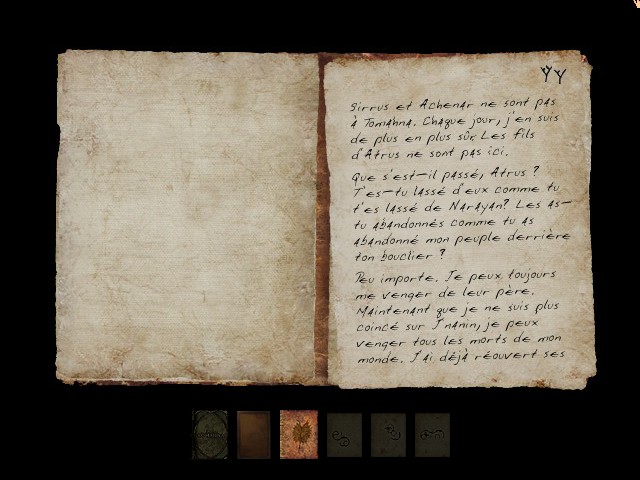 Sirrus et Achenar ne sont pas
à Tomahna. Chaque jour, j'en suis
de plus en plus sûr Les fils
d'Atrus ne sont pas ici.
Que s'est-il passé, Atrus ?
T'es-tu lassé d'eux comme tu
t'es lassé de Narayan? Les as-
tu abandonnés comme tu as
abandonné mon peuple derrière
ton bouclier ?
Peu importe. Je peux toujours
me venger de leur père.
Maintenant que je ne suis plus
coincé sur J'nanin, je peux
venger tous les morts de mon
monde. J'ai déjà réouvert ses